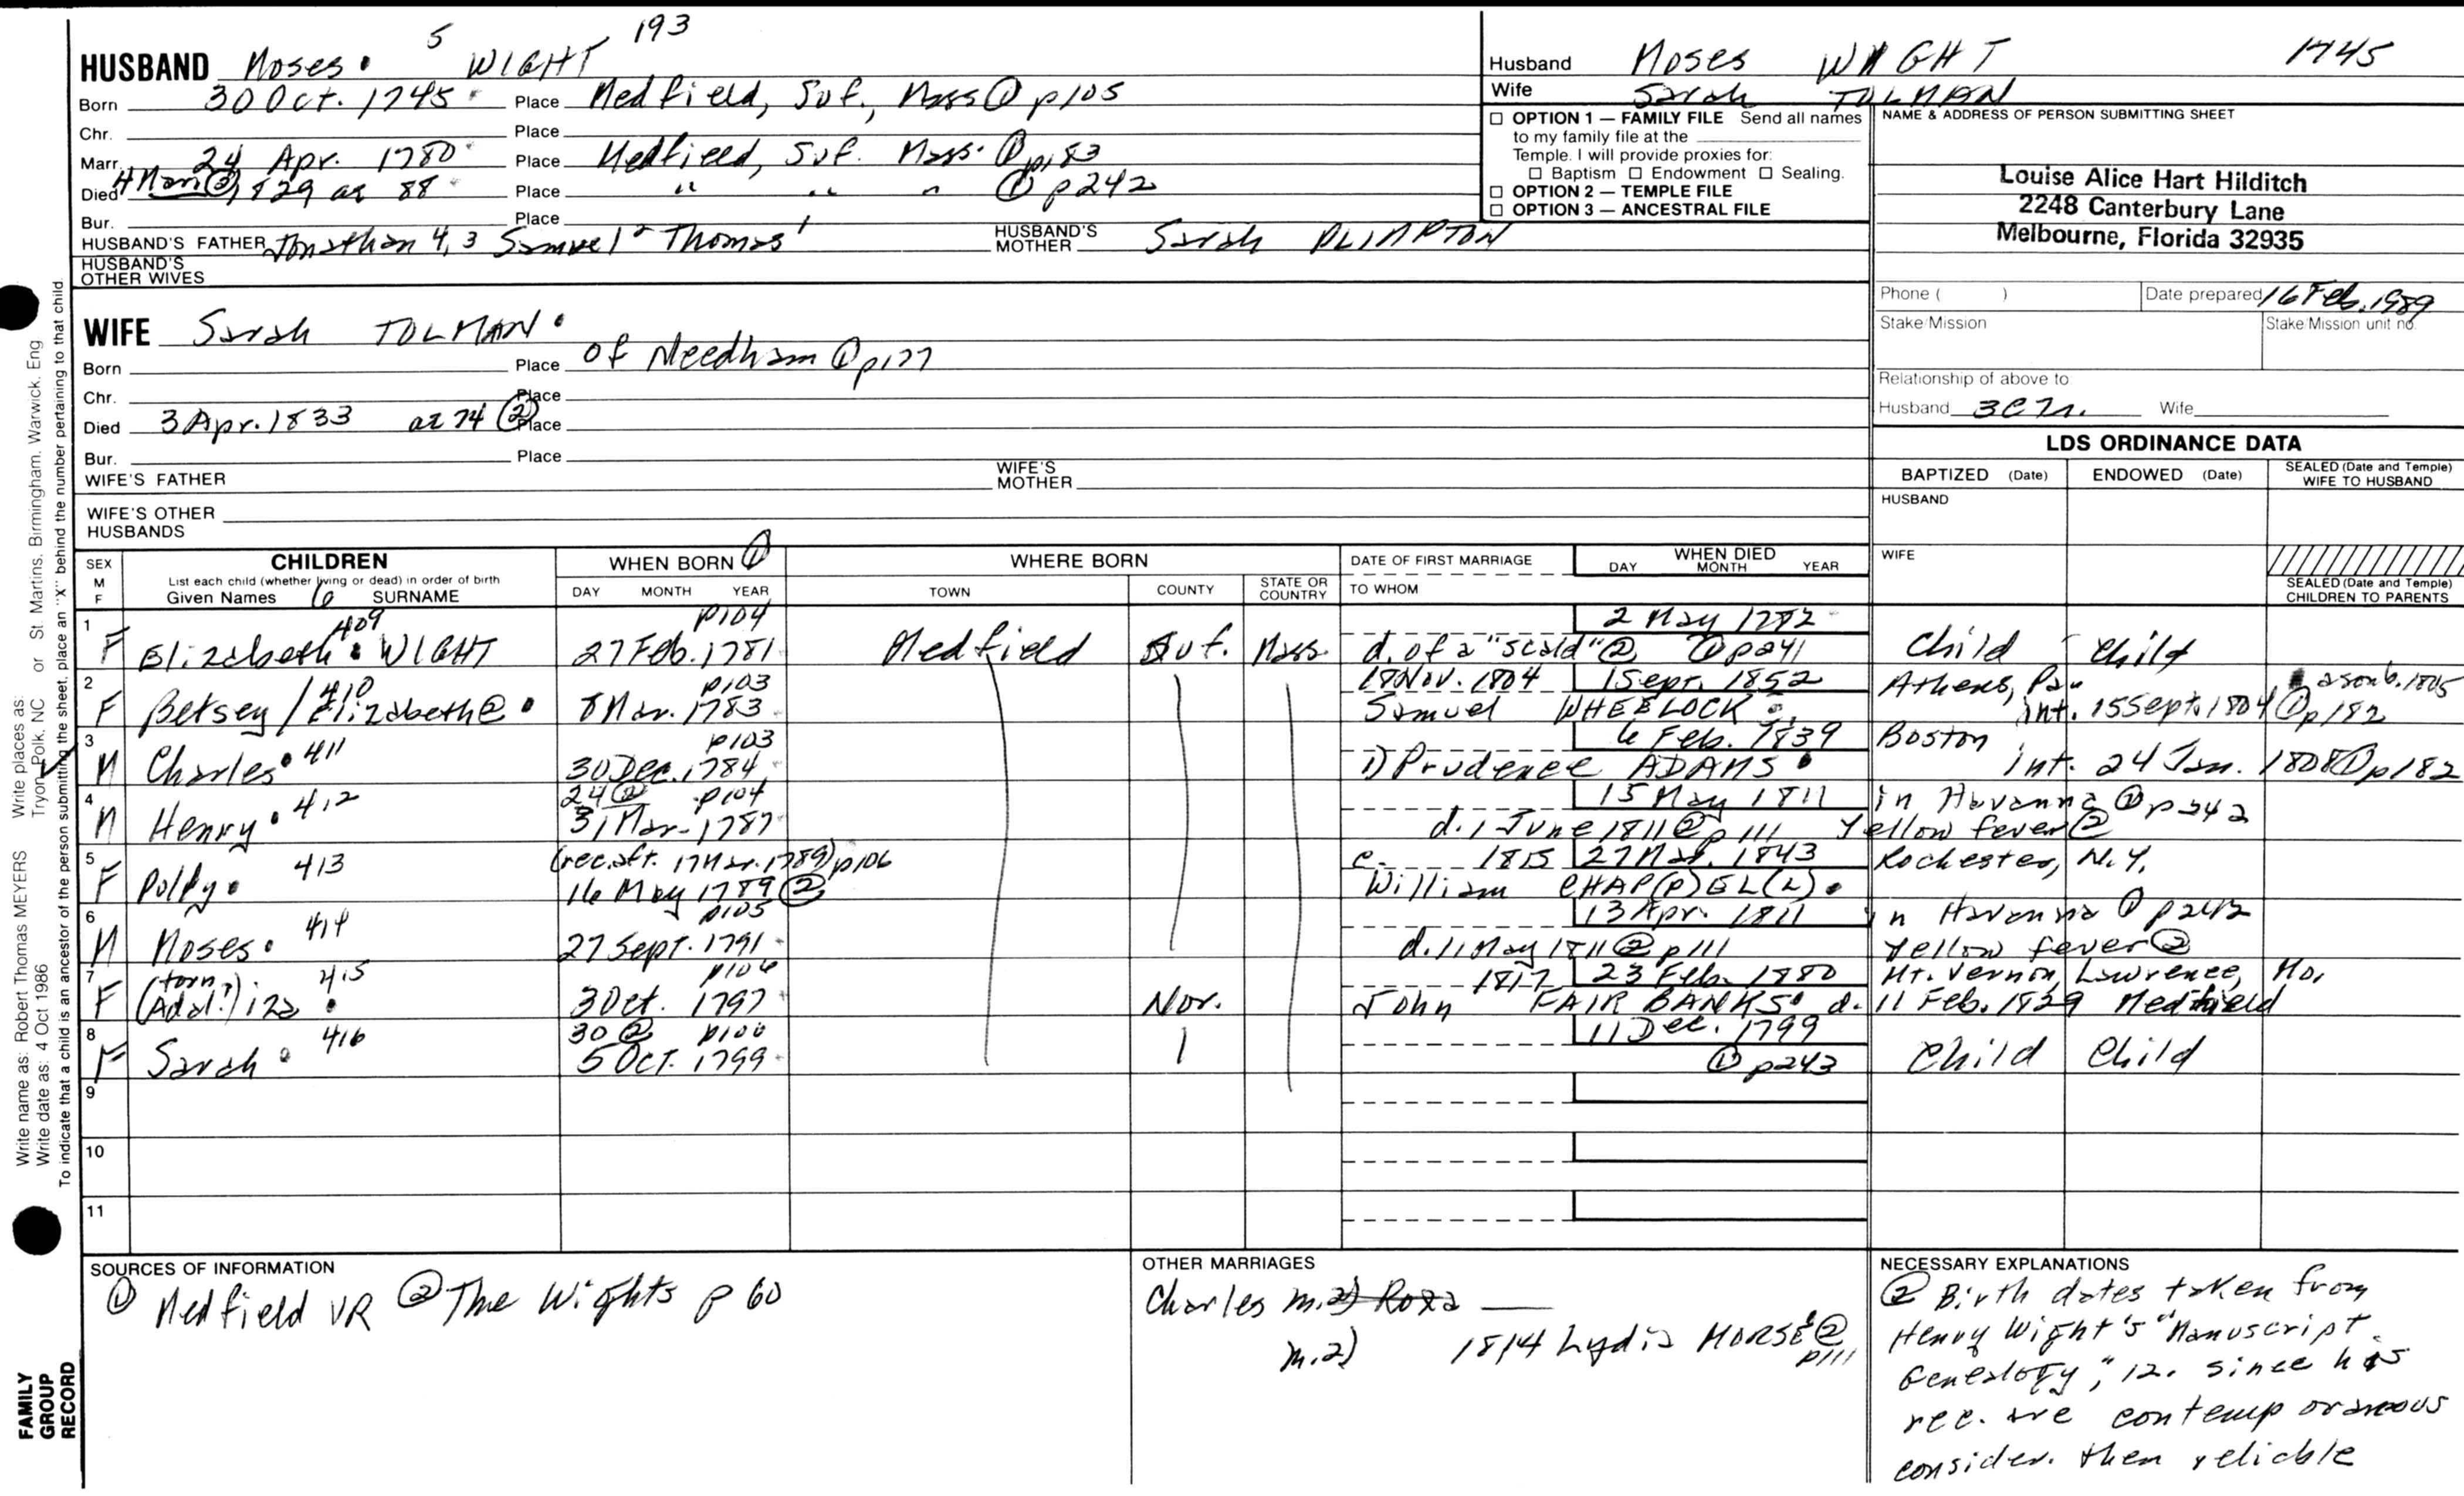 5 193
HUSBAND Moses WIGHT
Born 30 Oct. 1745 Place Medfield, Suf., Mass ① p105
Chr. Place
Marr. 24 Apr. 1780 Place Medfield, Suf. Mass. ① p183
Died 4 Mar ②, 1829 ae 88 Place " " " ① p242
Bur. Place
HUSBAND'S FATHER Jonathan 4, 3 Samuel 2 Thomas 1 HUSBAND'S MOTHER Sarah PLIMPTON
HUSBAND'S OTHER WIVES
Husband Moses WIGHT 1745
Wife Sarah TOLMAN
☐ OPTION 1 — FAMILY FILE Send all names
to my family file at the
Temple. I will provide proxies for:
☐ Baptism ☐ Endowment ☐ Sealing.
☐ OPTION 2 — TEMPLE FILE
☐ OPTION 3 — ANCESTRAL FILE
NAME & ADDRESS OF PERSON SUBMITTING SHEET
Louise Alice Hart Hilditch
2248 Canterbury Lane
Melbourne, Florida 32935
Phone ( ) Date prepared 16 Feb. 1989
Stake/Mission Stake/Mission unit no.
Relationship of above to
Husband Wife
WIFE Sarah TOLMAN
Born Place of Needham ① p177
Chr. Place
Died 3 Apr. 1833 ae 74 ② Place
Bur. Place
WIFE'S FATHER WIFE'S MOTHER
WIFE'S OTHER
HUSBANDS
LDS ORDINANCE DATA
BAPTIZED (Date) ENDOWED (Date) SEALED (Date and Temple)
WIFE TO HUSBAND
HUSBAND
WIFE
SEALED (Date and Temple)
CHILDREN TO PARENTS
SEX M F CHILDREN WHEN BORN ① WHERE BORN DATE OF FIRST MARRIAGE WHEN DIED
List each child (whether living or dead) in order of birth
Given Names 6 SURNAME DAY MONTH YEAR TOWN COUNTY STATE OR COUNTRY TO WHOM DAY MONTH YEAR
1 409 p104 2 May 1782
F Elizabeth WIGHT 27 Feb. 1781 Medfield Suf. Mass. d. of a "scald" ② ① p241 Child Child
2 410 p103 18 Nov. 1804 1 Sept. 1852 Athens, Pa.
F Betsey/Elizabeth② 8 Mar. 1783 Samuel WHEELOCK int. 15 Sept. 1804 ① p182
3 411 p103 6 Feb. 1839 Boston
M Charles 30 Dec. 1784 1) Prudence ADAMS int. 24 Jan. 1808 ① p182
4 412 24 ② p104 15 May 1811 in Havanna ① p242
M Henry 31 Mar. 1787 d. 1 June 1811 ② p111 Yellow fever ②
5 413 (rec. aft. 17 Mar. 1789) p106 c. 1815 27 Mar. 1843 Rochester, N.Y.
F Polly 16 May 1789 ② William CHAP(P)EL(L)
6 414 p105 13 Apr. 1811 in Havanna ① p242
M Moses 27 Sept. 1791 d. 11 May 1811 ② p111 Yellow fever ②
7 (torn) 415 p104 1817 23 Feb. 1880 Mt. Vernon, Lawrence, Mo.
F (Adal?)iza 3 Oct. 1797 Nor. John FAIRBANKS d. 11 Feb. 1829 Medfield
8 416 30 ② p106 11 Dec. 1799
F Sarah 5 Oct. 1799 ① p243 Child Child
9
10
11
SOURCES OF INFORMATION
① Medfield VR ② The Wights p 60
OTHER MARRIAGES
Charles m. 2) Roxa
m. 2) 1814 Lydia MORSE ② p111
NECESSARY EXPLANATIONS
② Birth dates taken from
Henry Wight's "Manuscript
Genealogy," 12. since his
rec. are contemporaneous
consider. them reliable
Write name as: Robert Thomas MEYERS Write places as: Tryon, Polk, NC or St. Martins, Birmingham, Warwick, Eng
Write date as: 4 Oct 1986
To indicate that a child is an ancestor of the person submitting the sheet, place an "X" behind the number pertaining to that child.
FAMILY
GROUP
RECORD